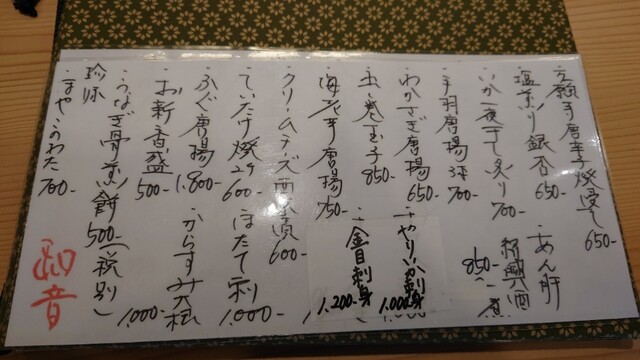 ・万願寺唐辛子焼浸し 650-
・塩煎り銀杏 650-
・あん肝紹興酒煮 850-
・いか一夜干し炙り 700-
・手羽唐揚 3本 700-
・わかさぎ唐揚 650-
・やりいか刺身 1,000-
・出し巻玉子 850-
・金目刺身 1,200-
・海老芋唐揚 750-
・クリームチーズ西京漬 600-
・しいたけ焼 2ケ 600-
・ほたて刺 1,000-
・ふぐ唐揚 1,800-
・からすみ大根 1,000-
・お新香盛 500-
・うなぎ骨煎餅 500-
(税別)
珍味
・ほや・このわた 700-